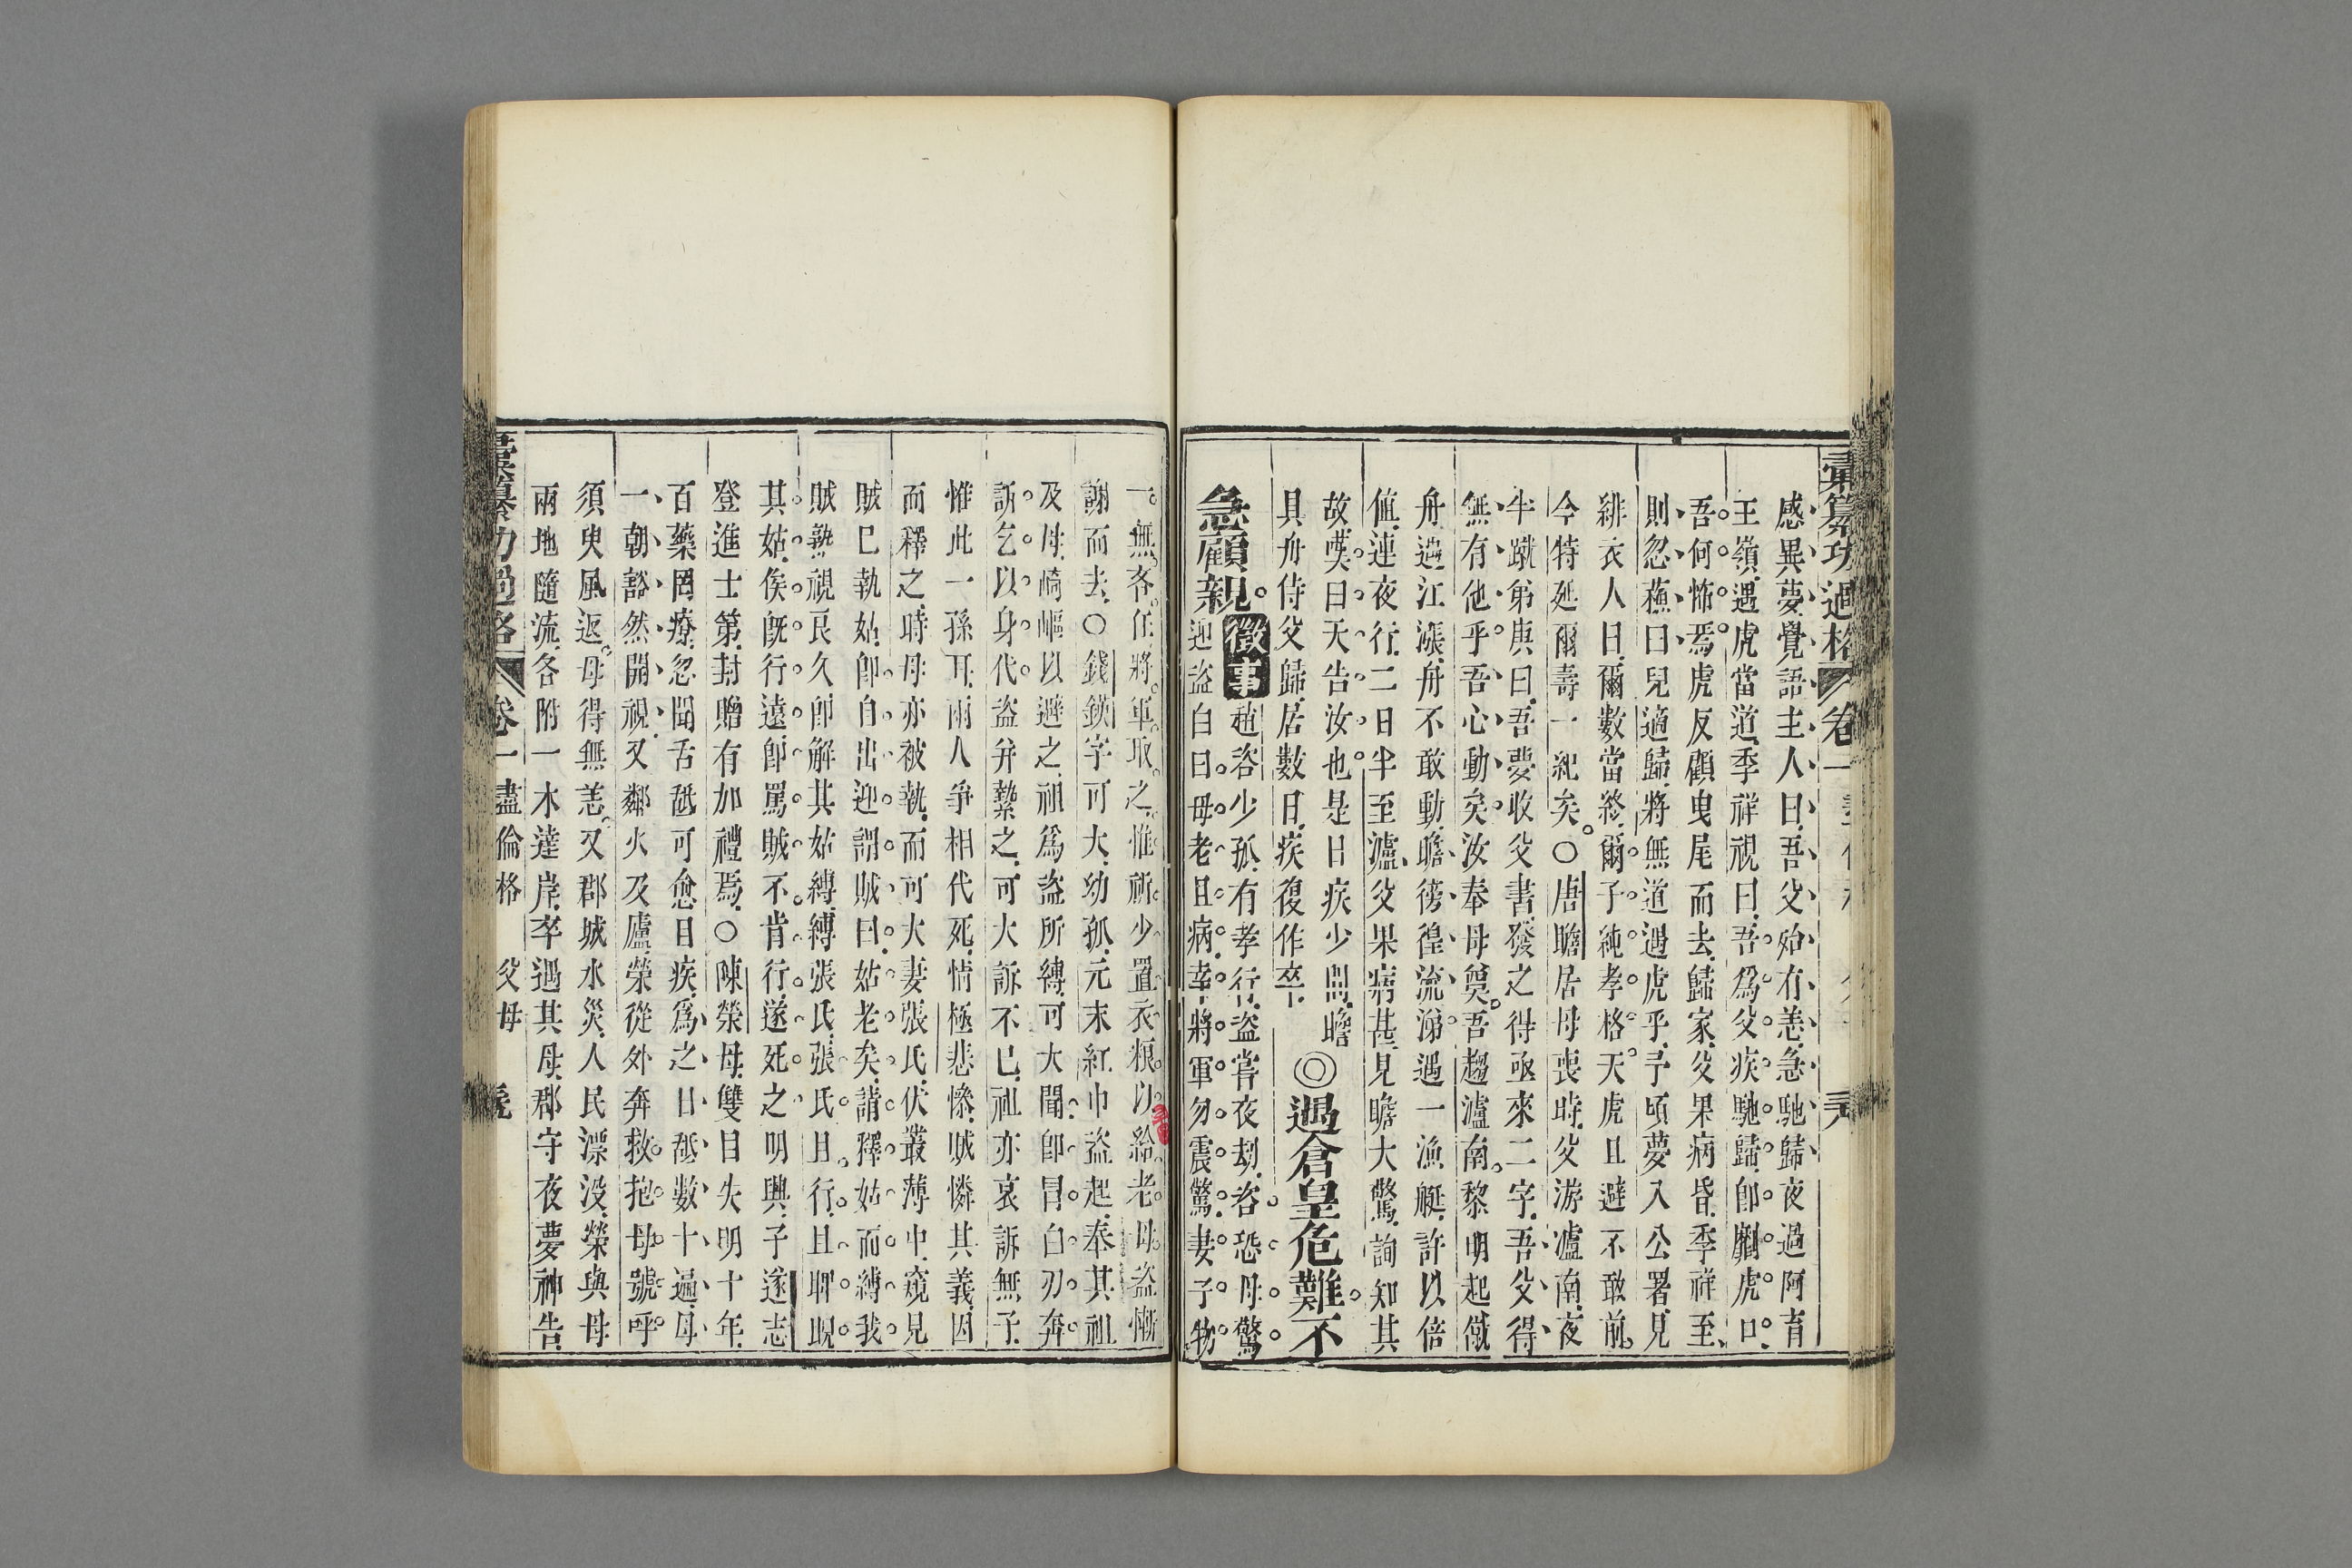 彙纂功過格 卷一
感異夢覺語主人曰吾父始有恙急馳歸夜過阿育
王嶺遇虎當道季祥視曰吾為父疾馳歸即膏虎口
吾何怖焉虎反顧曳尾而去歸家父果病昏季祥至
則忽蘓曰兒適歸將無道遇虎乎予頃夢入公署見
緋衣人曰爾數當終爾子純孝格天虎且避不敢前
今特延爾壽一紀矣○唐瞻居母喪時父游瀘南夜
半蹴弟庚曰吾夢收父書發之得亟來二字吾父得
無有他乎吾心動矣汝奉母奠吾趨瀘南黎明起僦
舟過江漲舟不敢動瞻徬徨流涕遇一漁艇許以倍
值連夜行二日半至瀘父果病甚見瞻大驚詢知其
故嘆曰天告汝也是日疾少間瞻
具舟侍父歸居數日疾復作卒
◎遇倉皇危難不
急顧親
徵事
趙咨少孤有孝行盜嘗夜刼咨恐母驚
迎盜白曰母老且病幸將軍勿震驚妻子物
一無吝任將軍取之惟祈少置衣粮以給老母盜慚
謝而去○錢鍈字可大幼孤元末紅巾盜起奉其祖
及母崎嶇以避之祖為盜所縛可大聞即冒白刃奔
訴乞以身代盜并縶之可大訴不已祖亦哀訴無子
惟此一孫耳兩人爭相代死情極悲慘賊憐其義因
而釋之時母亦被執而可大妻張氏伏叢薄中窺見
賊已執姑即自出迎謂賊曰姑老矣請釋姑而縛我
賊熟視良久即解其姑縛縛張氏張氏且行且睨
其姑俟旣行遠即罵賊不肯行遂死之明興子遂志
登進士第封贈有加禮焉○陳榮母雙目失明十年
百藥罔療忽聞舌舐可愈目疾為之日舐數十遍母
一朝豁然開視又鄰火及廬榮從外奔救抱母號呼
須臾風返母得無恙又郡城水災人民漂没榮與母
兩地隨流各附一木達岸卒遇其母郡守夜夢神告
彙纂功過格 卷一 盡倫格 父母